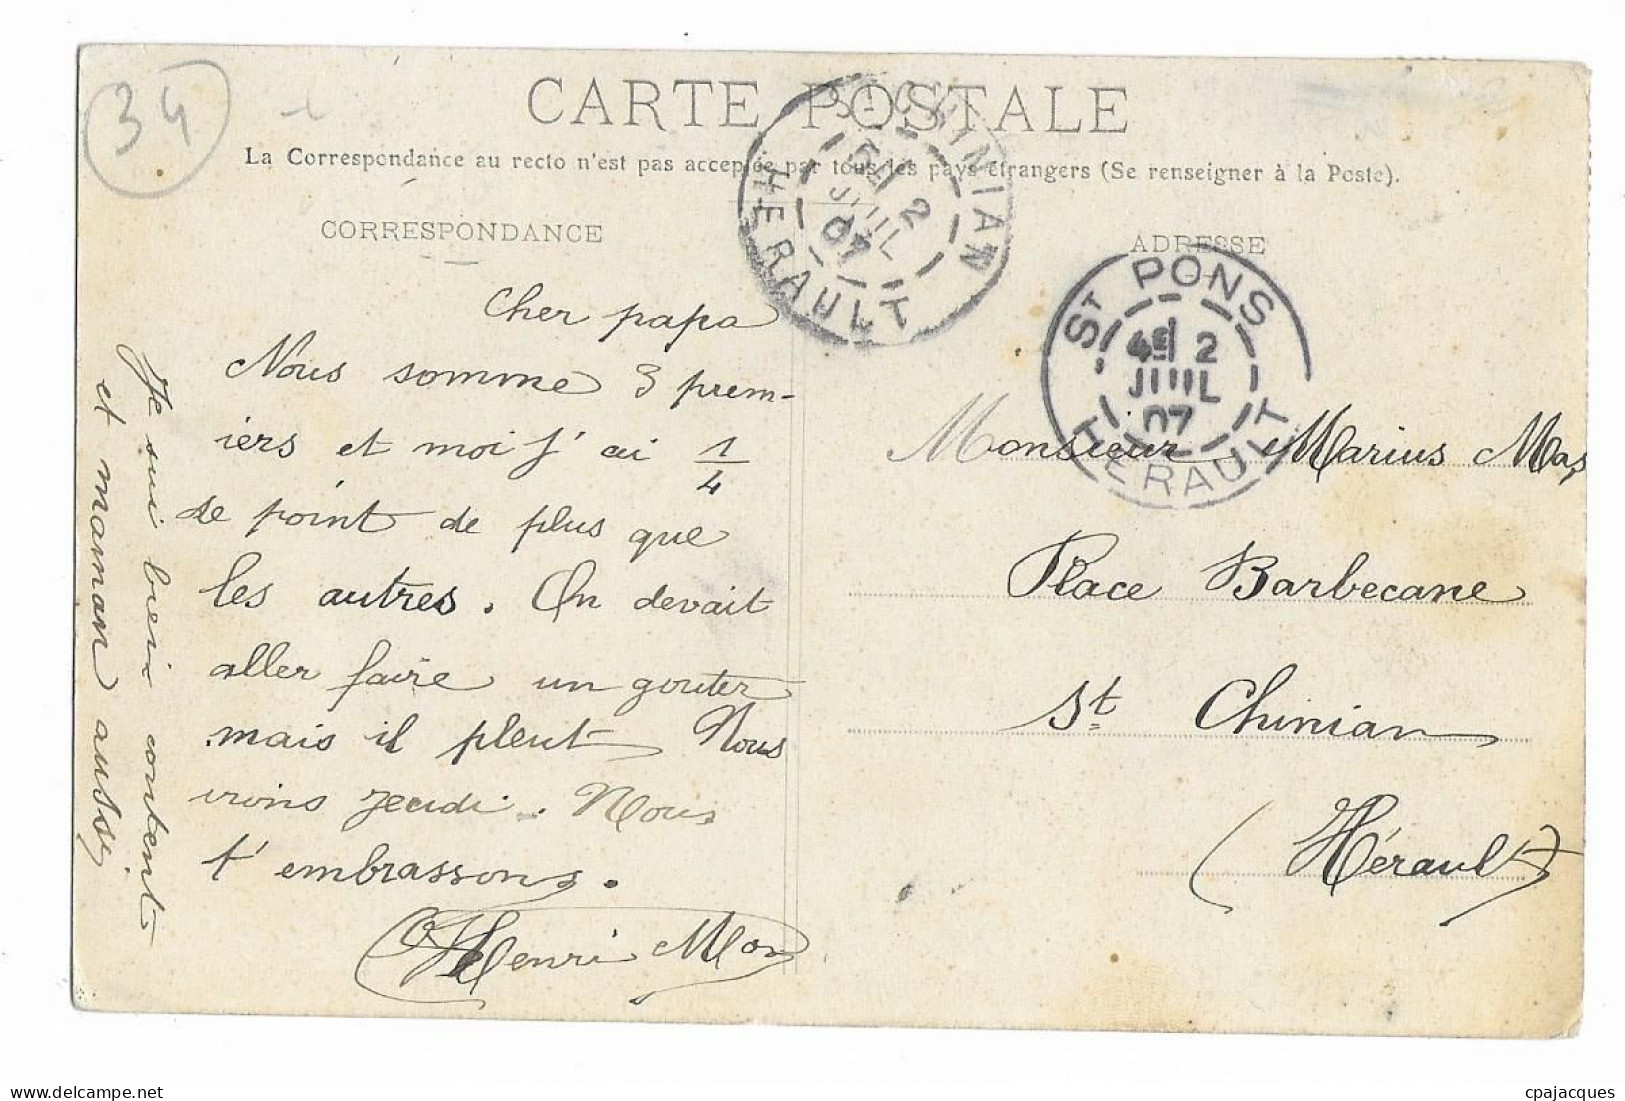 34
CARTE POSTALE
La Correspondance au recto n'est pas acceptée par tous les pays étrangers (Se renseigner à la Poste).
CORRESPONDANCE
Cher papa
Nous somme 3 prem-
iers et moi j'ai 1/4
de point de plus que
les autres. On devait
aller faire un gouter
mais il pleut Nous
irons jeudi. Nous
t'embrassons.
Henri Mas
Je suis bien content
et maman aussi
ST CHINIAN
2
JUIL
07
HERAULT
ADRESSE
ST PONS
4E 2
JUIL
07
HERAULT
Monsieur Marius Mas
Place Barbecane
St Chinian
(Hérault)
www.delcampe.net
cpajacques